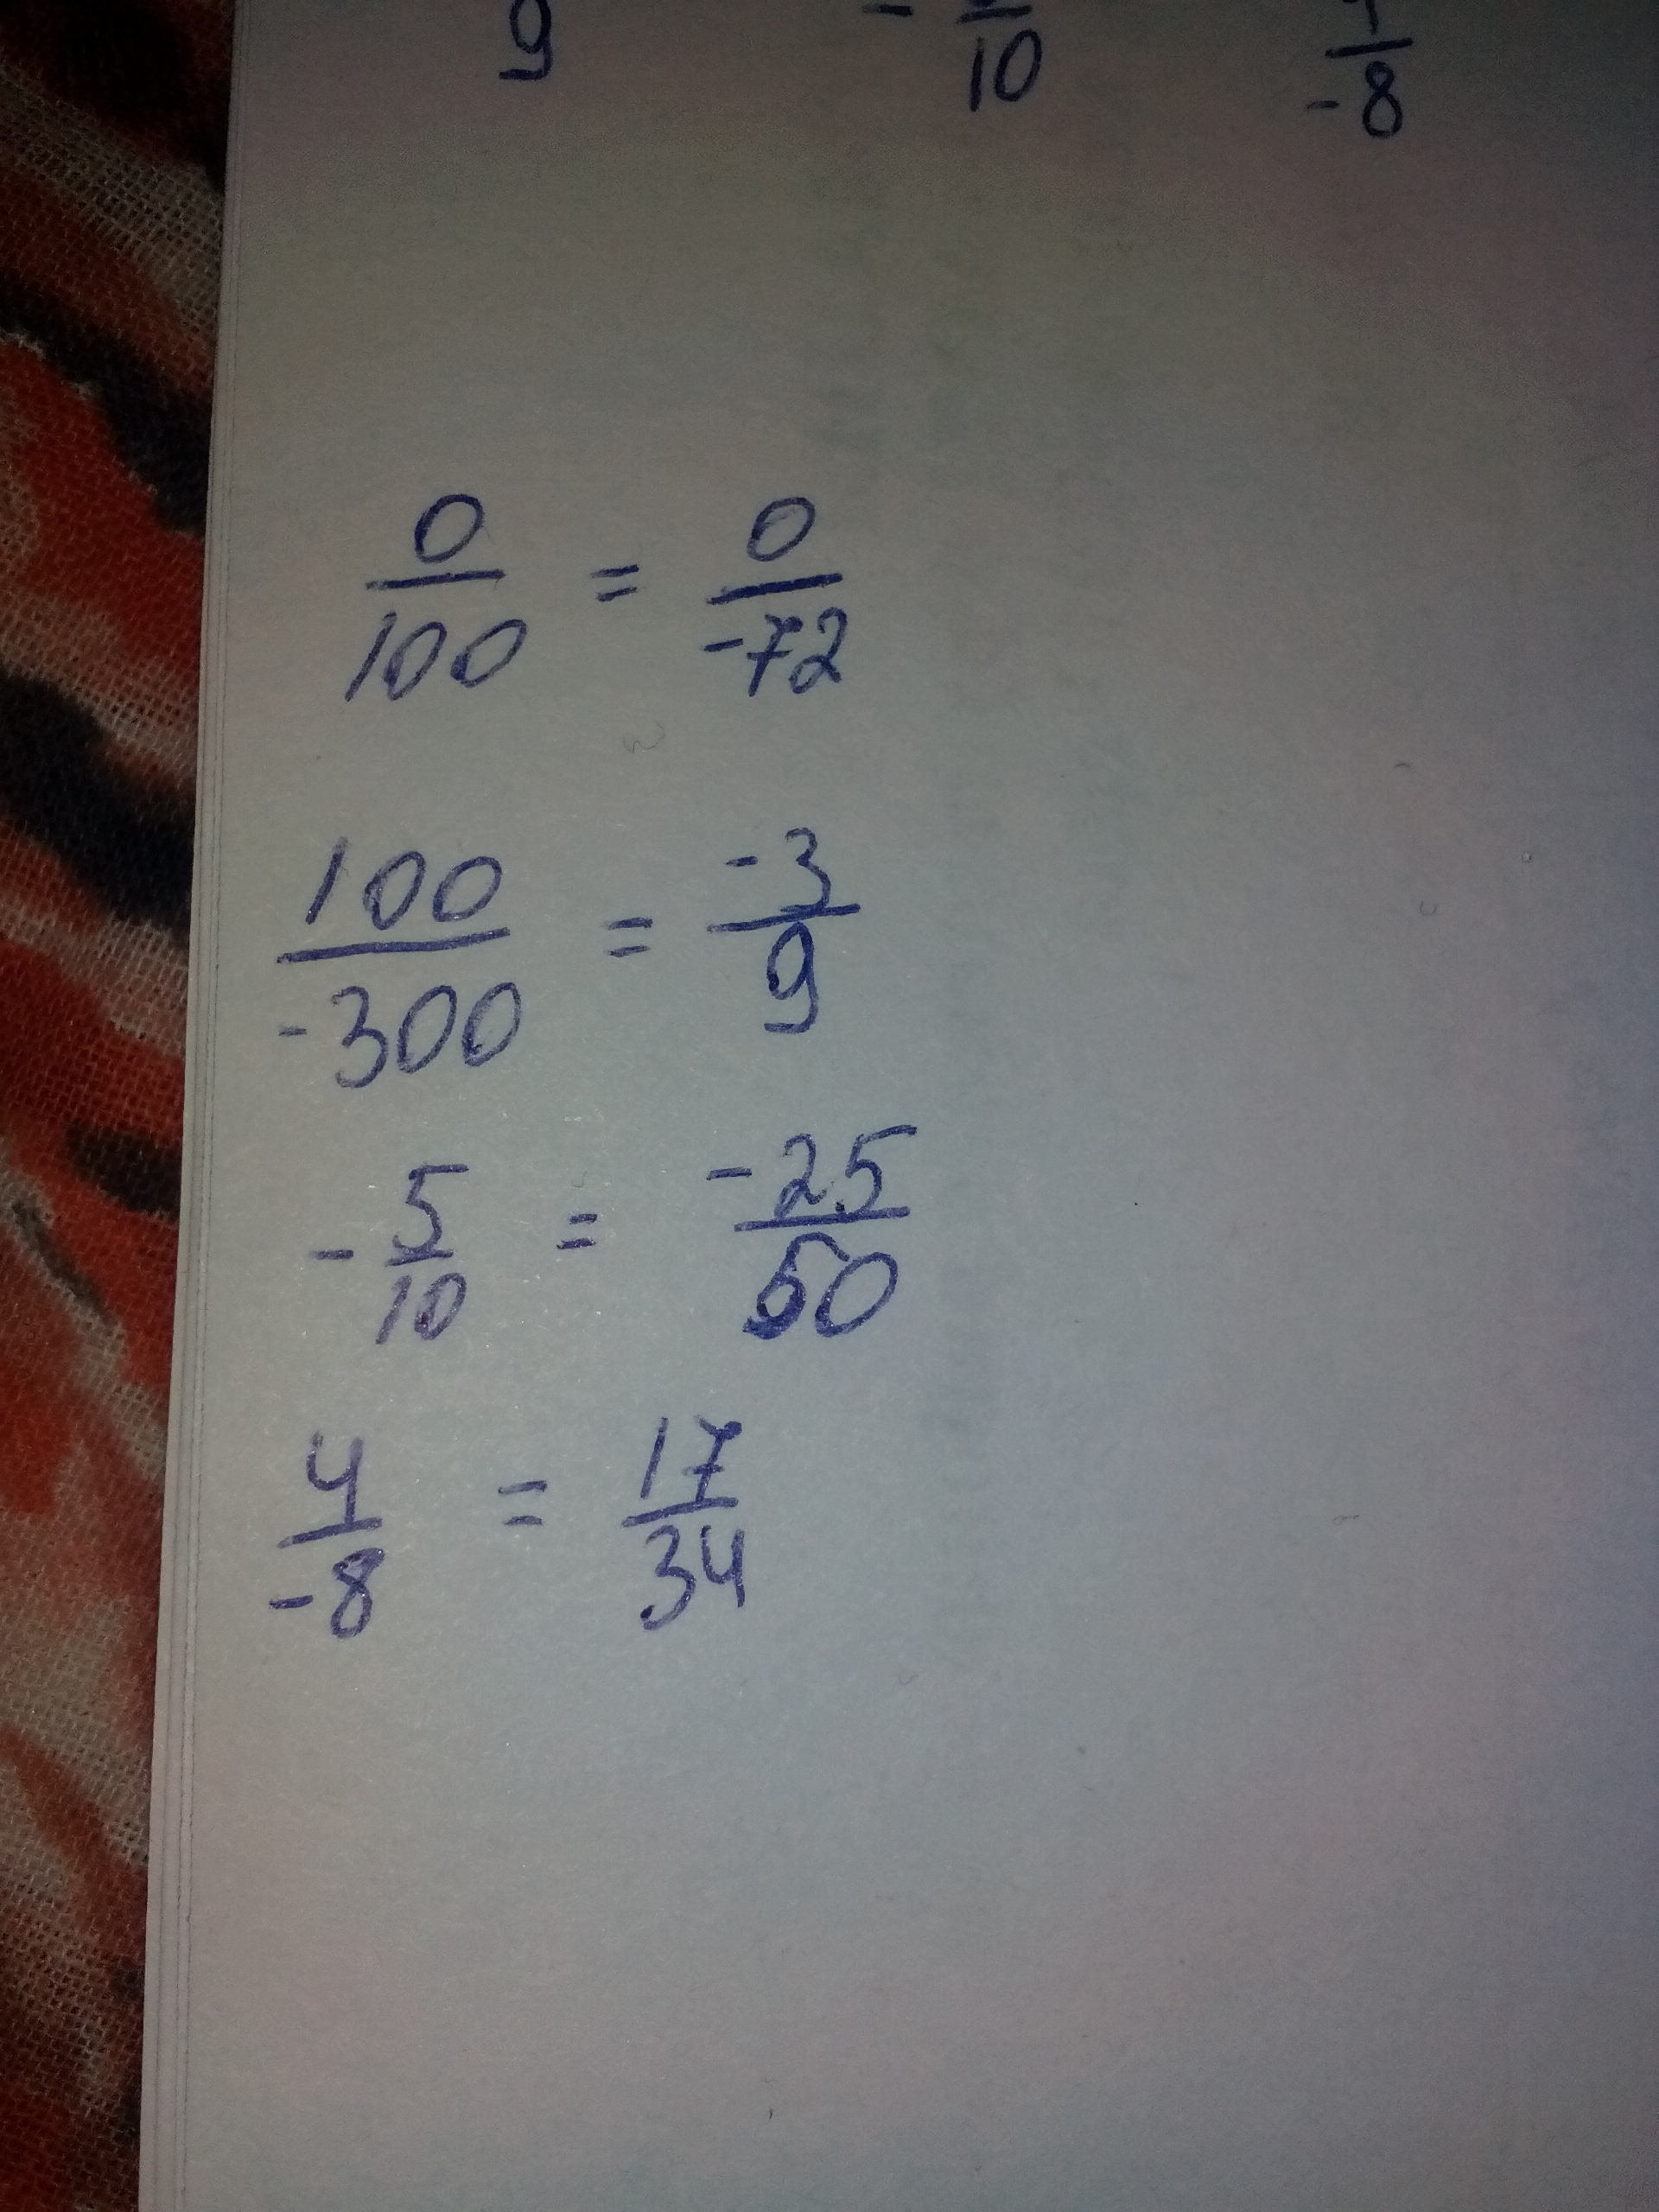 9 - /10 /-8
0/100 = 0/-72
100/-300 = -3/9
- 5/10 = -25/50
4/-8 = 17/34